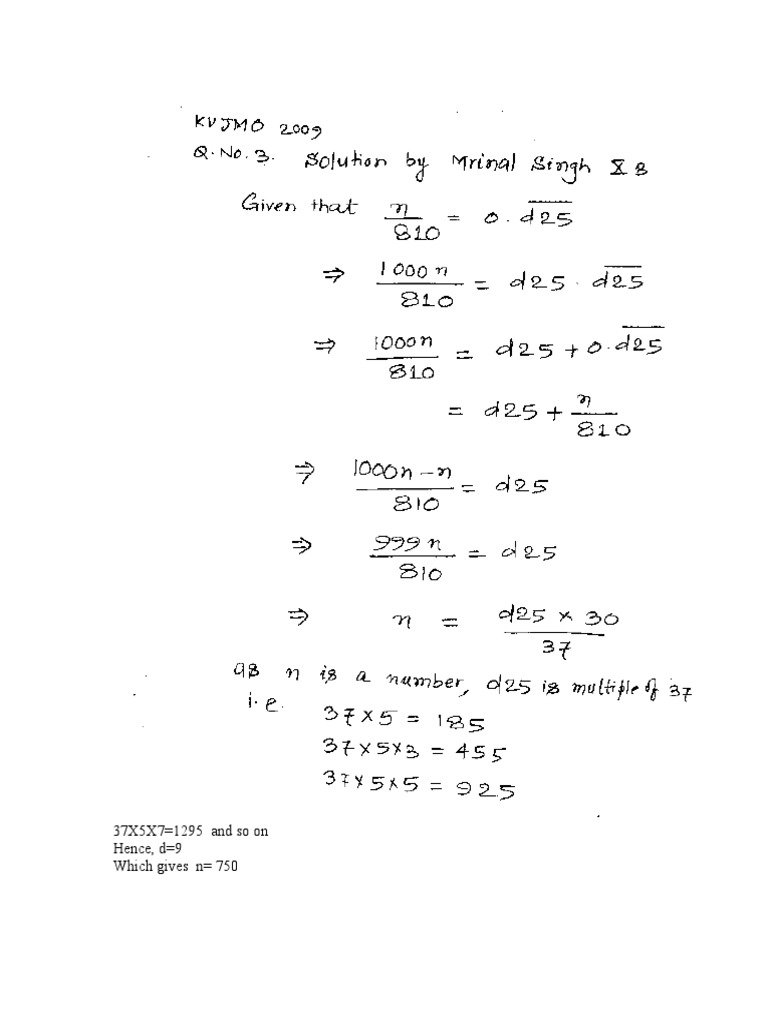 KVJMO 2009
Q. No. 3. Solution by Mrinal Singh X B
Given that n/810 = 0.d̅2̅5̅
⇒ 1000n/810 = d25.d̅2̅5̅
⇒ 1000n/810 = d25 + 0.d̅2̅5̅
= d25 + n/810
⇒ 1000n-n/810 = d25
⇒ 999n/810 = d25
⇒ n = d25 × 30/37
as n is a number, d25 is multiple of 37
i.e. 37×5 = 185
37×5×3 = 455
37×5×5 = 925
37X5X7=1295 and so on
Hence, d=9
Which gives n= 750